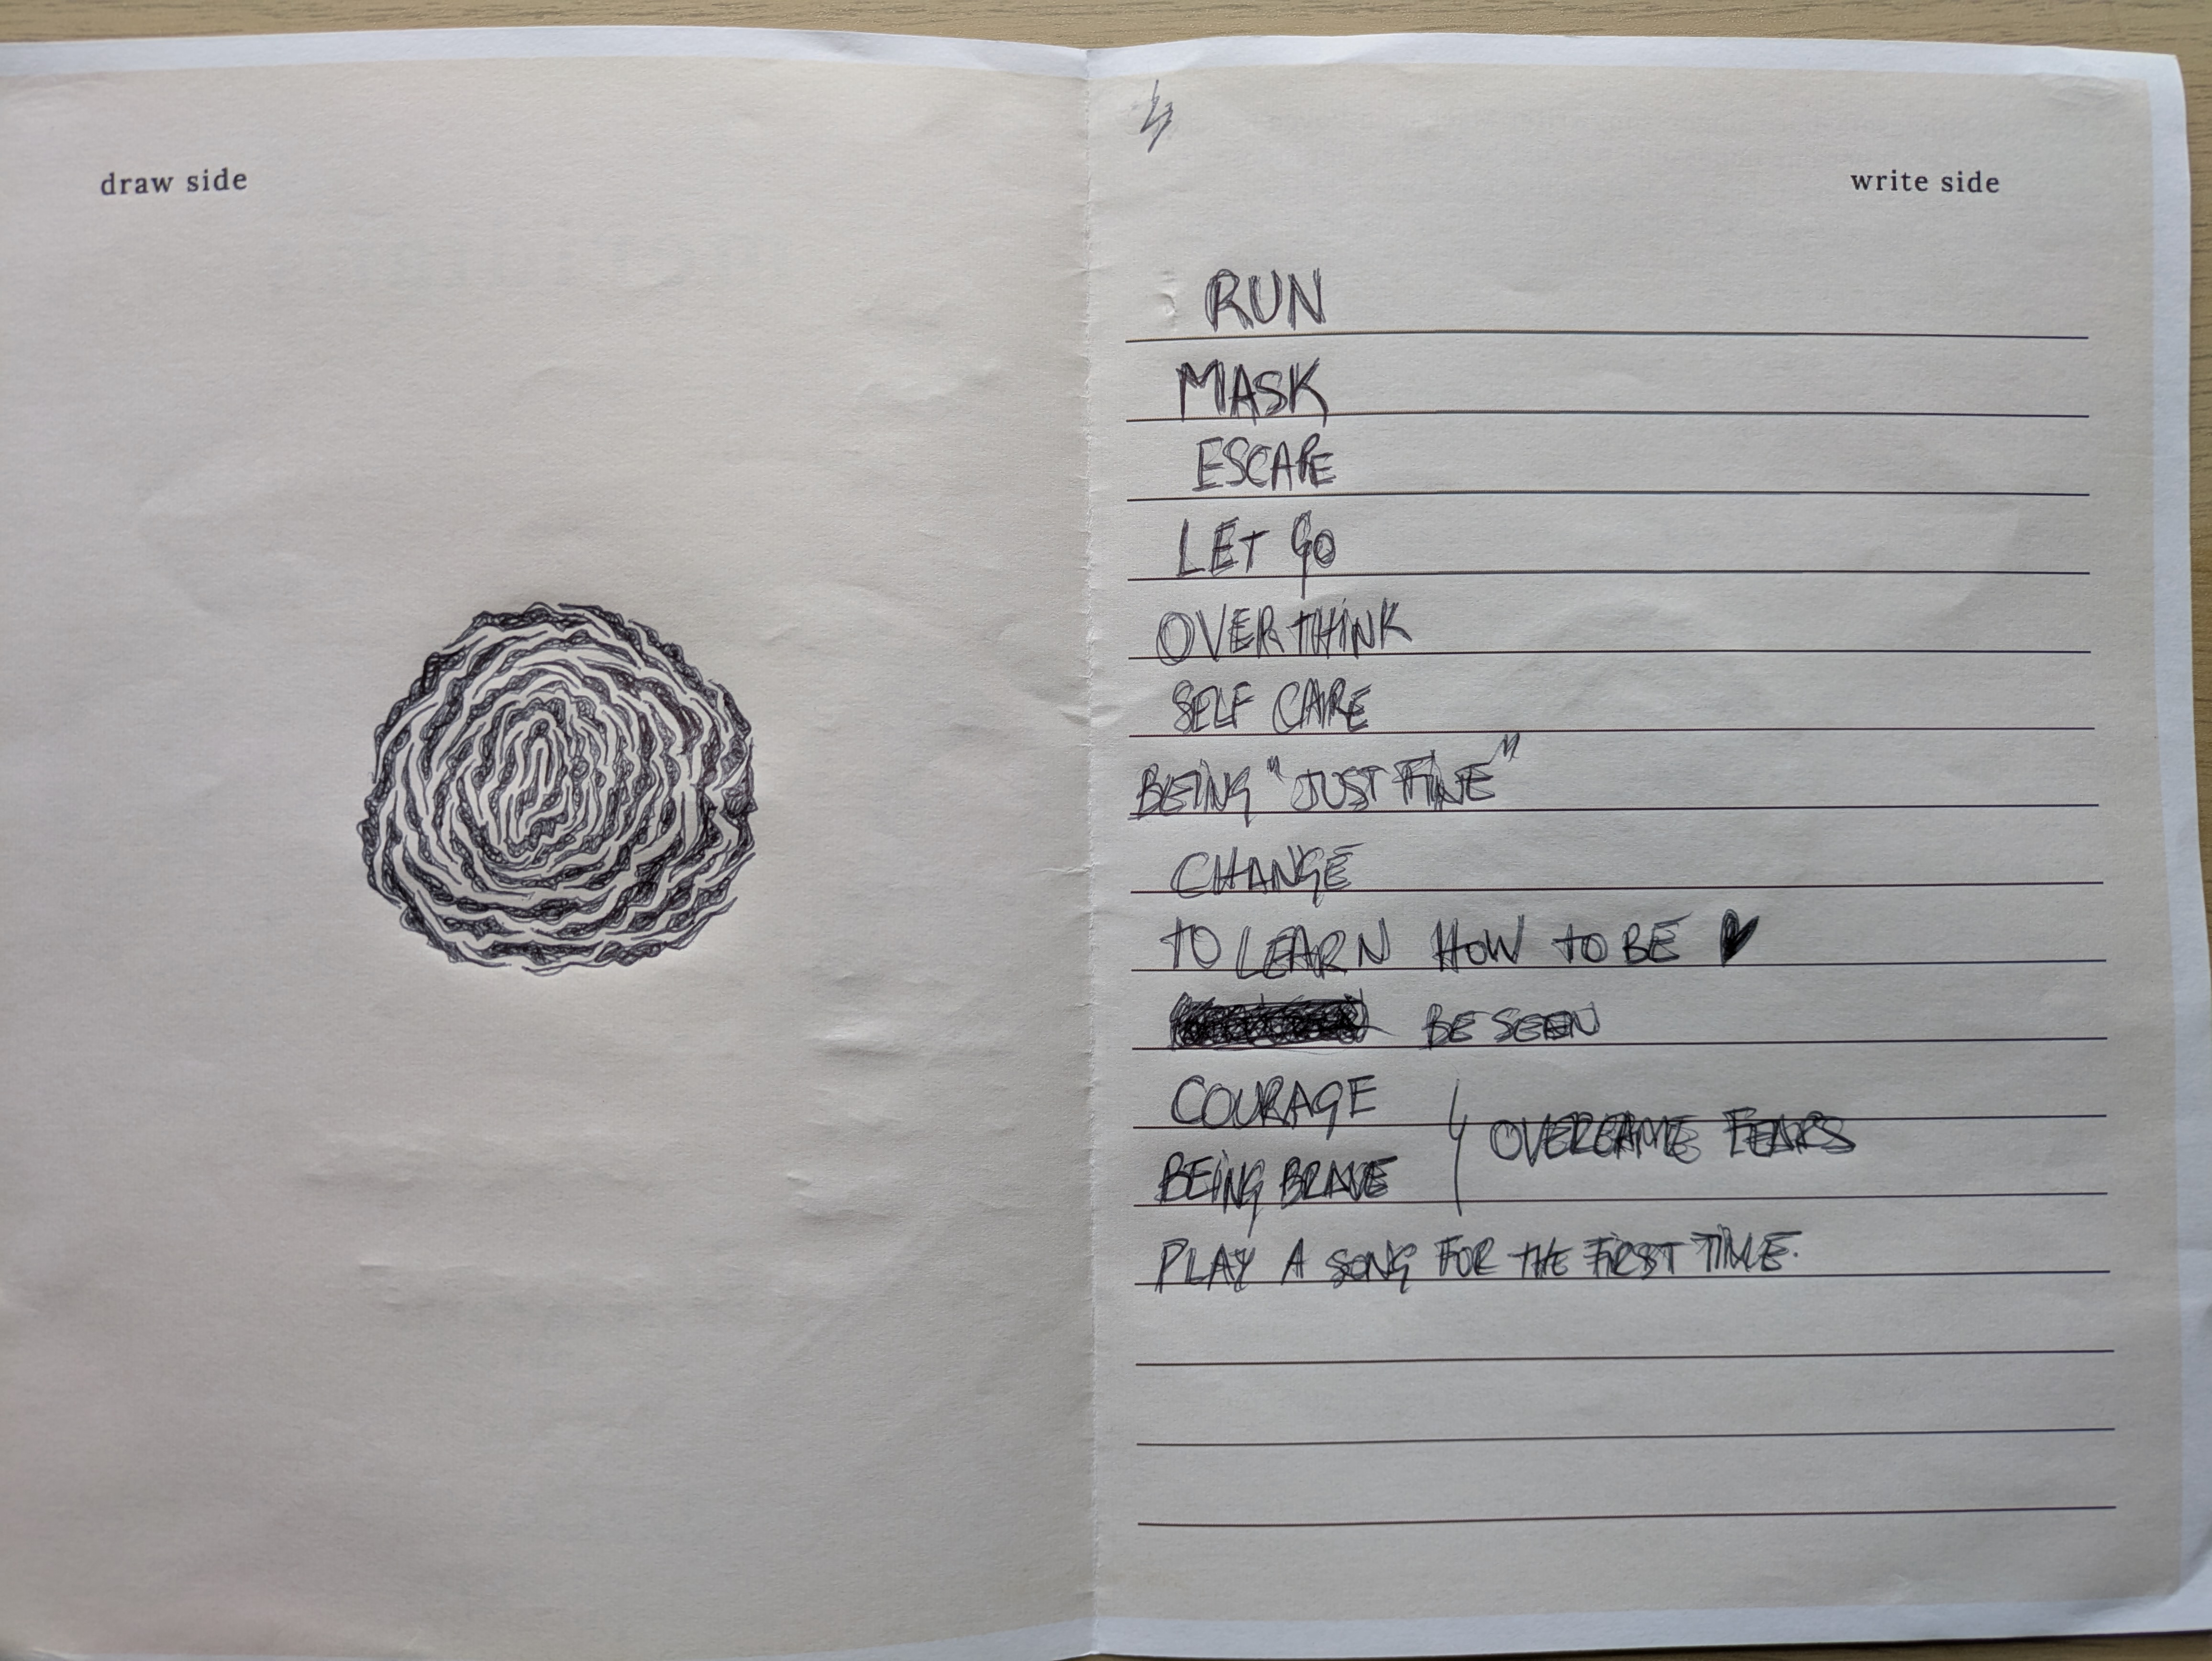 draw side
write side
RUN
MASK
ESCAPE
LET GO
OVER THINK
SELF CARE
BEING "JUST FINE"
CHANGE
TO LEARN HOW TO BE ♥
BE SEEN
COURAGE
OVERCAME FEARS
BEING BRAVE
PLAY A SONG FOR THE FIRST TIME.